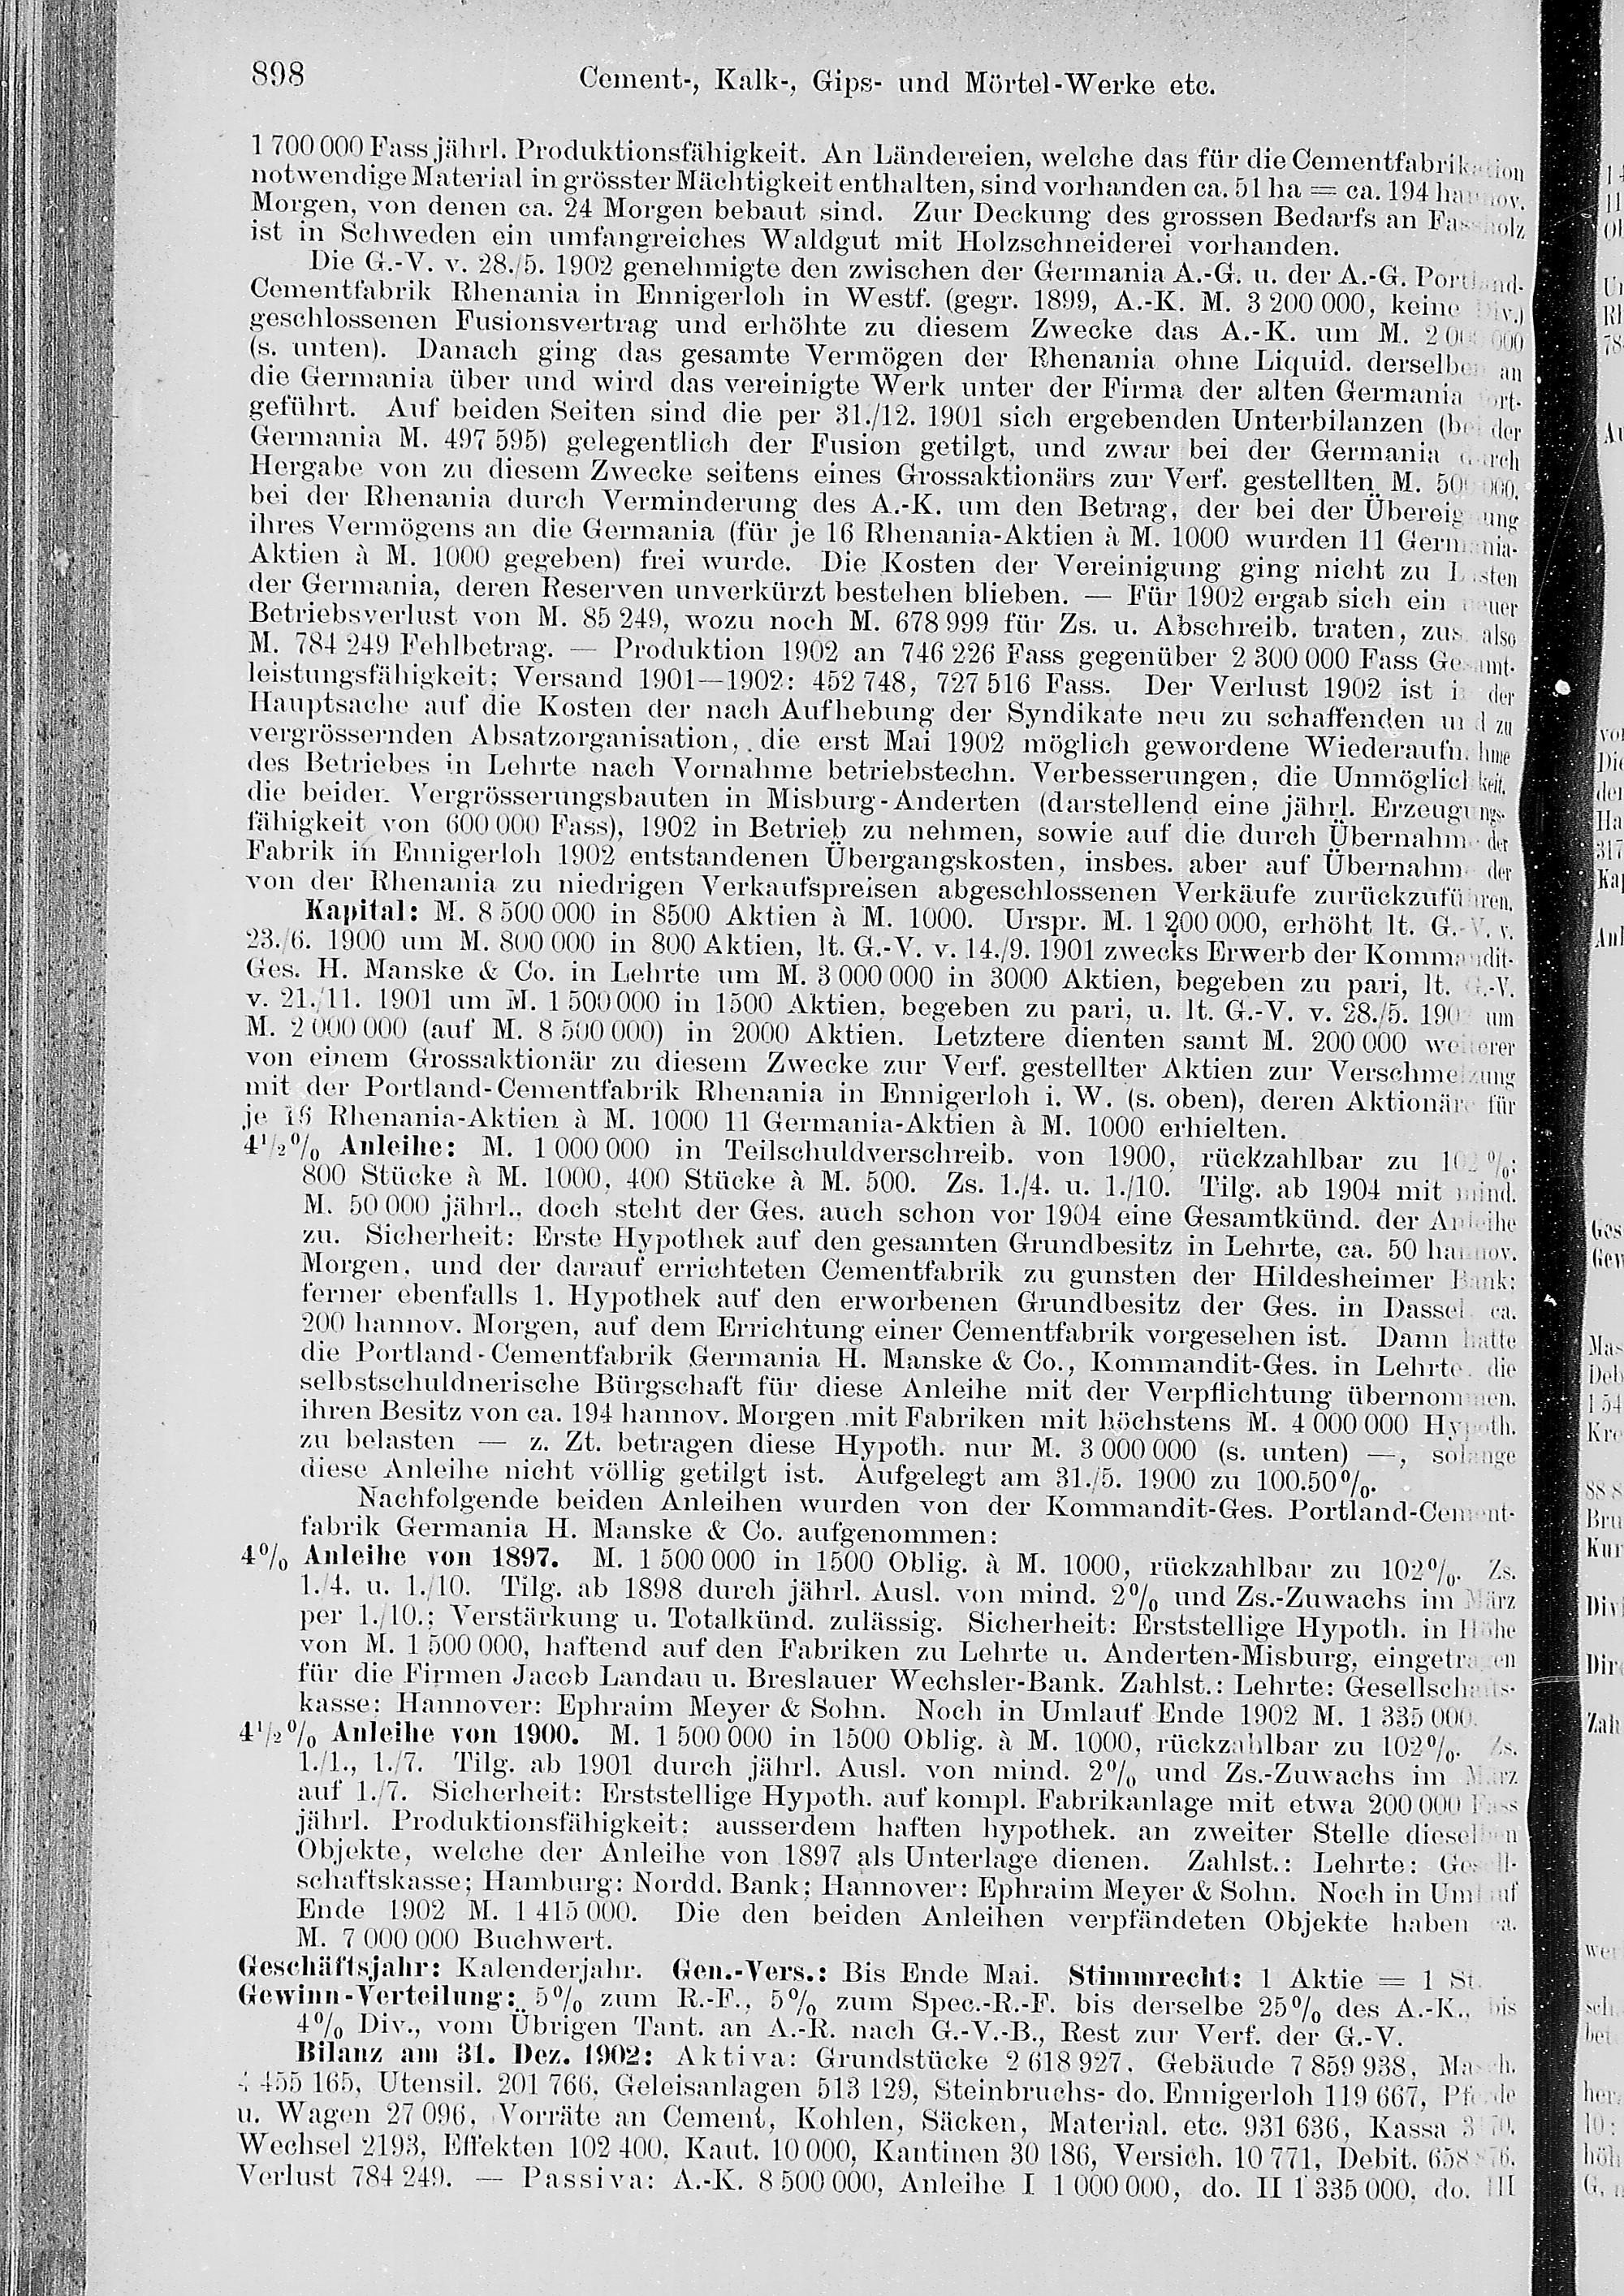 898 Cement-, Kalk-, Gips- und Mörtel-Werke etc.
1 700 000 Fass jährl. Produktionsfähigkeit. An Ländereien, welche das für die Cementfabrikation
notwendige Material in grösster Mächtigkeit enthalten, sind vorhanden ca. 51 ha = ca. 194 hannov.
Morgen, von denen ca. 24 Morgen bebaut sind. Zur Deckung des grossen Bedarfs an Fassholz
ist in Schweden ein umfangreiches Waldgut mit Holzschneiderei vorhanden.
Die G.-V. v. 28./5. 1902 genehmigte den zwischen der Germania A.-G. u. der A.-G. Portland-
Cementfabrik Rhenania in Ennigerloh in Westf. (gegr. 1899, A.-K. M. 3 200 000, keine Div.)
geschlossenen Fusionsvertrag und erhöhte zu diesem Zwecke das A.-K. um M. 2 000 000
(s. unten). Danach ging das gesamte Vermögen der Rhenania ohne Liquid. derselben an
die Germania über und wird das vereinigte Werk unter der Firma der alten Germania fort-
geführt. Auf beiden Seiten sind die per 31./12. 1901 sich ergebenden Unterbilanzen (bei der
Germania M. 497 595) gelegentlich der Fusion getilgt, und zwar bei der Germania durch
Hergabe von zu diesem Zwecke seitens eines Grossaktionärs zur Verf. gestellten M. 500 000,
bei der Rhenania durch Verminderung des A.-K. um den Betrag, der bei der Übereignung
ihres Vermögens an die Germania (für je 16 Rhenania-Aktien à M. 1000 wurden 11 Germania-
Aktien à M. 1000 gegeben) frei wurde. Die Kosten der Vereinigung ging nicht zu Lasten
der Germania, deren Reserven unverkürzt bestehen blieben. — Für 1902 ergab sich ein neuer
Betriebsverlust von M. 85 249, wozu noch M. 678 999 für Zs. u. Abschreib. traten, zus. also
M. 784 249 Fehlbetrag. — Produktion 1902 an 746 226 Fass gegenüber 2 300 000 Fass Gesamt-
leistungsfähigkeit; Versand 1901—1902: 452 748, 727 516 Fass. Der Verlust 1902 ist in der
Hauptsache auf die Kosten der nach Aufhebung der Syndikate neu zu schaffenden und zu
vergrössernden Absatzorganisation, die erst Mai 1902 möglich gewordene Wiederaufnahme
des Betriebes in Lehrte nach Vornahme betriebstechn. Verbesserungen, die Unmöglichkeit,
die beiden Vergrösserungsbauten in Misburg-Anderten (darstellend eine jährl. Erzeugungs-
fähigkeit von 600 000 Fass), 1902 in Betrieb zu nehmen, sowie auf die durch Übernahme der
Fabrik in Ennigerloh 1902 entstandenen Übergangskosten, insbes. aber auf Übernahme der
von der Rhenania zu niedrigen Verkaufspreisen abgeschlossenen Verkäufe zurückzuführen.
Kapital: M. 8 500 000 in 8500 Aktien à M. 1000. Urspr. M. 1 200 000, erhöht lt. G.-V. v.
23./6. 1900 um M. 800 000 in 800 Aktien, lt. G.-V. v. 14./9. 1901 zwecks Erwerb der Kommandit-
Ges. H. Manske & Co. in Lehrte um M. 3 000 000 in 3000 Aktien, begeben zu pari, lt. G.-V.
v. 21./11. 1901 um M. 1 500 000 in 1500 Aktien, begeben zu pari, u. lt. G.-V. v. 28./5. 1902 um
M. 2 000 000 (auf M. 8 500 000) in 2000 Aktien. Letztere dienten samt M. 200 000 weiterer
von einem Grossaktionär zu diesem Zwecke zur Verf. gestellter Aktien zur Verschmelzung
mit der Portland-Cementfabrik Rhenania in Ennigerloh i. W. (s. oben), deren Aktionäre für
je 16 Rhenania-Aktien à M. 1000 11 Germania-Aktien à M. 1000 erhielten.
4½% Anleihe: M. 1 000 000 in Teilschuldverschreib. von 1900, rückzahlbar zu 102%;
800 Stücke à M. 1000, 400 Stücke à M. 500. Zs. 1./4. u. 1./10. Tilg. ab 1904 mit mind.
M. 50 000 jährl., doch steht der Ges. auch schon vor 1904 eine Gesamtkünd. der Anleihe
zu. Sicherheit: Erste Hypothek auf den gesamten Grundbesitz in Lehrte, ca. 50 hannov.
Morgen, und der darauf errichteten Cementfabrik zu gunsten der Hildesheimer Bank;
ferner ebenfalls 1. Hypothek auf den erworbenen Grundbesitz der Ges. in Dassel, ca.
200 hannov. Morgen, auf dem Errichtung einer Cementfabrik vorgesehen ist. Dann hatte
die Portland-Cementfabrik Germania H. Manske & Co., Kommandit-Ges. in Lehrte, die
selbstschuldnerische Bürgschaft für diese Anleihe mit der Verpflichtung übernommen,
ihren Besitz von ca. 194 hannov. Morgen mit Fabriken mit höchstens M. 4 000 000 Hypoth.
zu belasten — z. Zt. betragen diese Hypoth. nur M. 3 000 000 (s. unten) —, solange
diese Anleihe nicht völlig getilgt ist. Aufgelegt am 31./5. 1900 zu 100.50%.
Nachfolgende beiden Anleihen wurden von der Kommandit-Ges. Portland-Cement-
fabrik Germania H. Manske & Co. aufgenommen:
4% Anleihe von 1897. M. 1 500 000 in 1500 Oblig. à M. 1000, rückzahlbar zu 102%. Zs.
1./4. u. 1./10. Tilg. ab 1898 durch jährl. Ausl. von mind. 2% und Zs.-Zuwachs im März
per 1./10.; Verstärkung u. Totalkünd. zulässig. Sicherheit: Erststellige Hypoth. in Höhe
von M. 1 500 000, haftend auf den Fabriken zu Lehrte u. Anderten-Misburg, eingetragen
für die Firmen Jacob Landau u. Breslauer Wechsler-Bank. Zahlst.: Lehrte: Gesellschafts-
kasse; Hannover: Ephraim Meyer & Sohn. Noch in Umlauf Ende 1902 M. 1 335 000.
4½% Anleihe von 1900. M. 1 500 000 in 1500 Oblig. à M. 1000, rückzahlbar zu 102%. Zs.
1./1., 1./7. Tilg. ab 1901 durch jährl. Ausl. von mind. 2% und Zs.-Zuwachs im März
auf 1./7. Sicherheit: Erststellige Hypoth. auf kompl. Fabrikanlage mit etwa 200 000 Fass
jährl. Produktionsfähigkeit; ausserdem haften hypothek. an zweiter Stelle dieselben
Objekte, welche der Anleihe von 1897 als Unterlage dienen. Zahlst.: Lehrte: Gesell-
schaftskasse; Hamburg: Nordd. Bank; Hannover: Ephraim Meyer & Sohn. Noch in Umlauf
Ende 1902 M. 1 415 000. Die den beiden Anleihen verpfändeten Objekte haben ca.
M. 7 000 000 Buchwert.
Geschäftsjahr: Kalenderjahr. Gen.-Vers.: Bis Ende Mai. Stimmrecht: 1 Aktie = 1 St.
Gewinn-Verteilung: 5% zum R.-F., 5% zum Spec.-R.-F. bis derselbe 25% des A.-K., bis
4% Div., vom Übrigen Tant. an A.-R. nach G.-V.-B., Rest zur Verf. der G.-V.
Bilanz am 31. Dez. 1902: Aktiva: Grundstücke 2 618 927, Gebäude 7 859 938, Masch.
455 165, Utensil. 201 766, Geleisanlagen 513 129, Steinbruchs- do. Ennigerloh 119 667, Pferde
u. Wagen 27 096, Vorräte an Cement, Kohlen, Säcken, Material. etc. 931 636, Kassa
Wechsel 2193, Effekten 102 400, Kaut. 10 000, Kantinen 30 186, Versich. 10 771, Debit. 658 876,
Verlust 784 249. — Passiva: A.-K. 8 500 000, Anleihe I 1 000 000, do. II 1 335 000, do. III